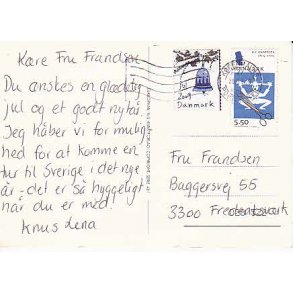 Kære Fru Frandsen
Du ønskes en glædelig
jul og et godt nytår.
Jeg håber vi får mulig
hed for at komme en
tur til Sverige i det nye
år - det er så hyggeligt
når du er med.
Knus Lena
Jul
2004
Danmark
DANMARK
5.50
Fru Frandsen
Baggersvej 55
3300 Frederiksværk